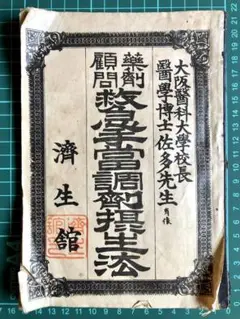 大阪醫科大學校長
醫學博士佐多先生
藥劑
顧問
救急手當調劑摂生法
濟生舘